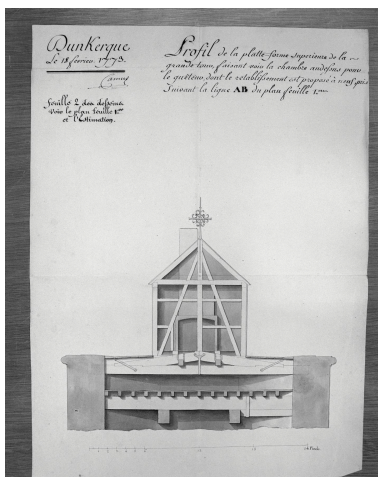 Dunkerque
Le 18 fevrier 1773.
feuille 2 des dessins
Voir le plan feuille 1.ere
et l'Estimation.
Profil de la platte-forme superieure de la
grande tour, faisant voir la chambre au dessous pour
le guetteur, dont le retablissement est proposé à neuf, pris
Suivant la ligne AB du plan feuille 1.ere